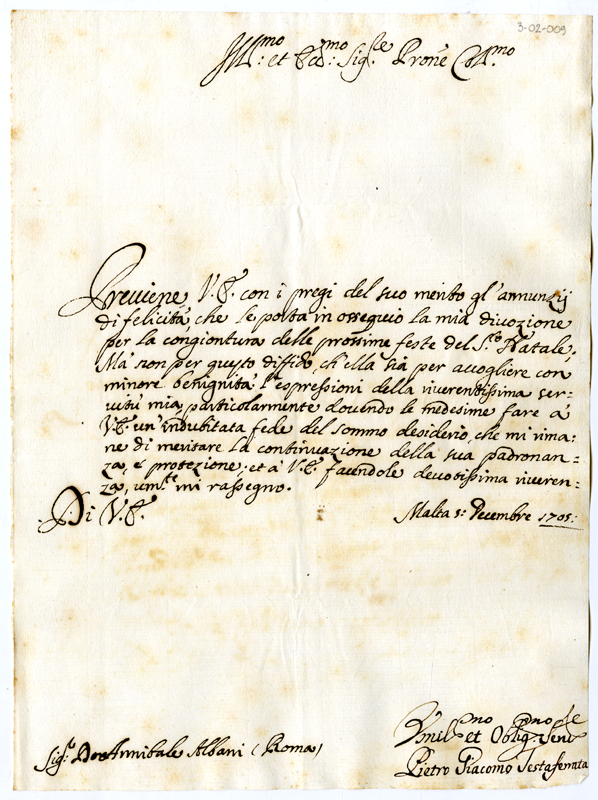 3-02-009
Ill.mo et Ecc.mo Sig.re Prone Col.mo
Previene V.E. con i pregi del suo merito gl'annunzij
di felicità, che le porta in ossequio la mia divozione
per la congiontura delle prossime feste del S.to Natale.
Mà non per questo diffido, ch'ella sia per accogliere con
minore benignità l'espressioni della riverentissima ser-
vitù mia, particolarmente dovendo le medesime fare à
V.E. un'indubitata fede del sommo desiderio, che mi rima:
ne di meritare la continuazione della sua padronan=
za, e protezione; et à V.E. facendole devotissima riveren=
za, um.te mi rassegno.
Di V.E.
Malta 5: Decembre 1705:
Sig.r Don Annibale Albani (Roma)
Umil.mo et Oblig.mo Serv.re
Pietro Giacomo Testaferrata